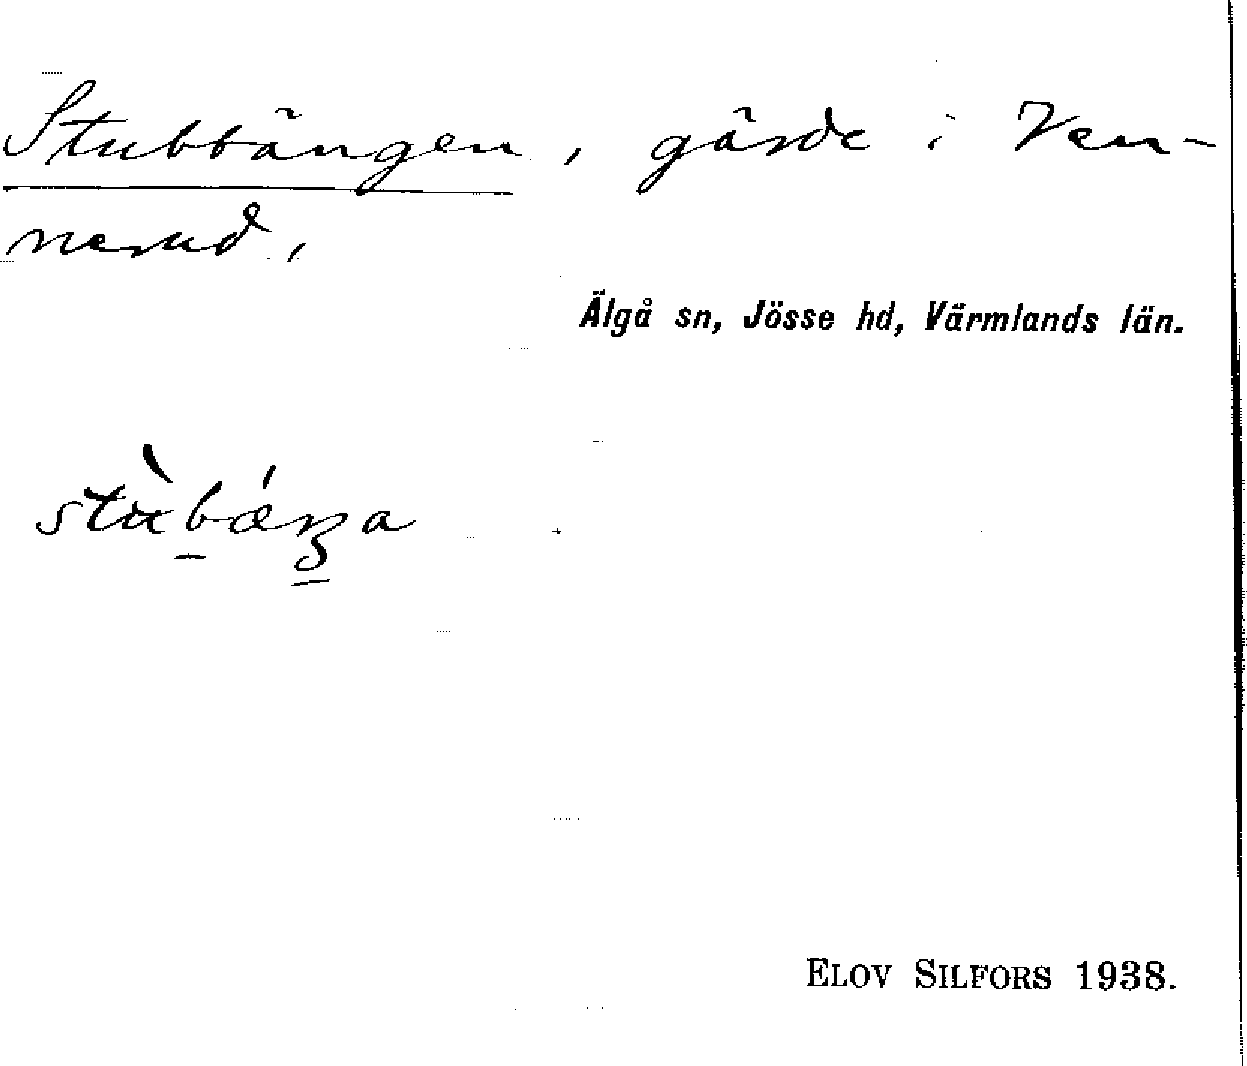 Stubbängen, gärde i Ven-
nerud,
Älgå sn, Jösse hd, Värmlands län.
ELOV SILFORS 1938.